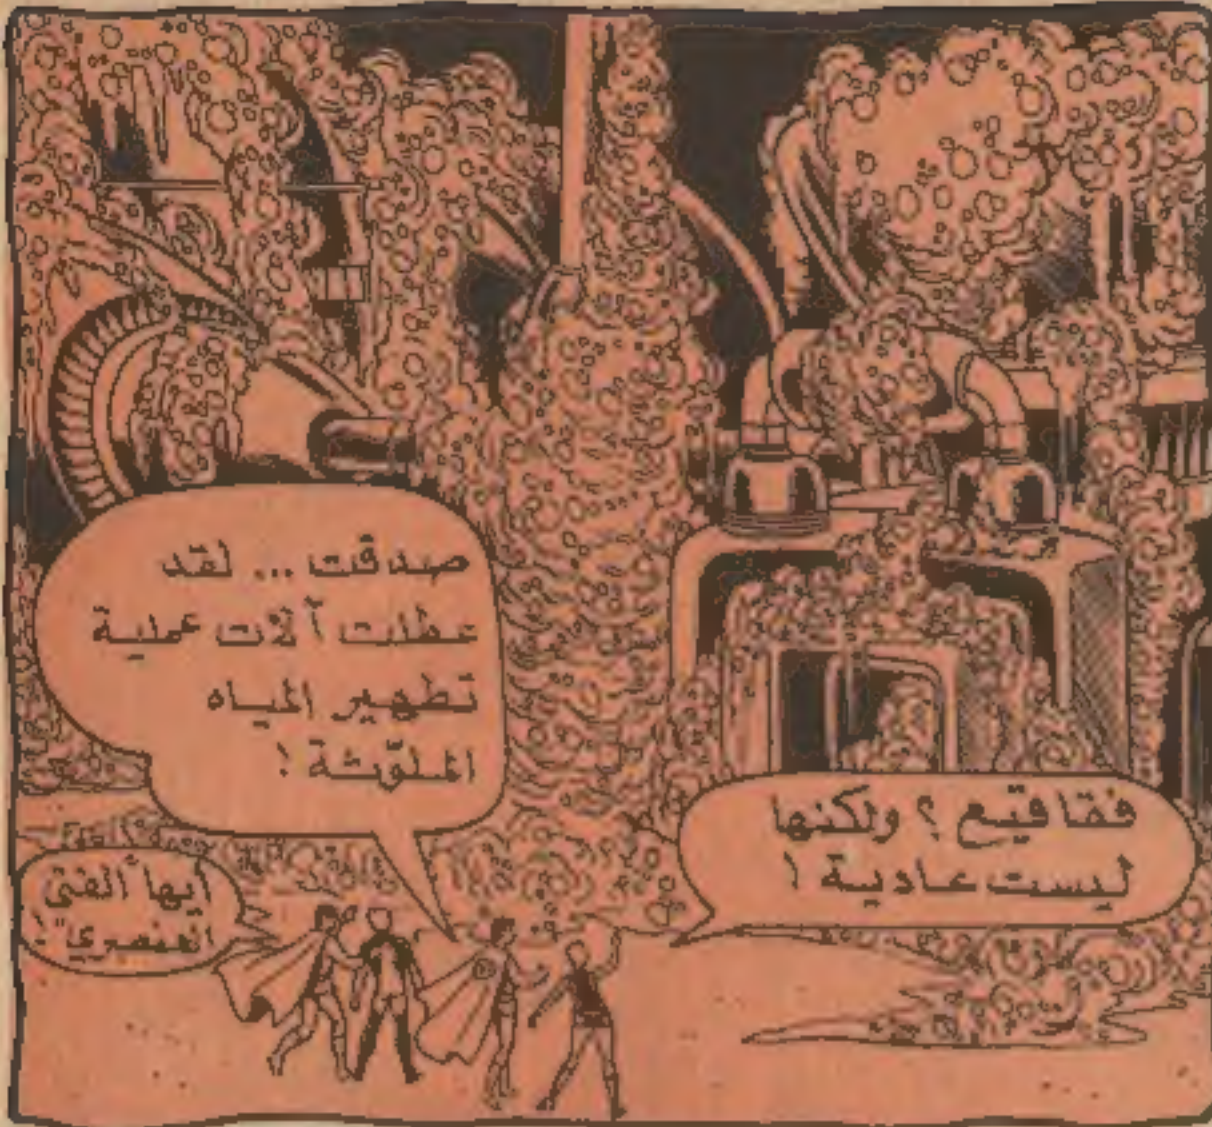 فقاقيع ؟ ولكنها
ليست عادية !
صدقت ... لقد
عطلت آلات عملية
تطهير المياه
الملوّثة !
أيها "الفتى
العنصري" !